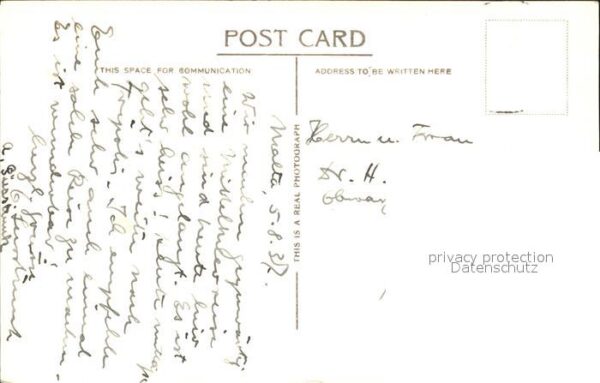 POST CARD
THIS SPACE FOR COMMUNICATION
ADDRESS TO BE WRITTEN HERE
THIS IS A REAL PHOTOGRAPH
Malta, 5.8.32.
Wir machen gegenwärtig
eine Mittelmeerreise
und sind heute hier
wohl angelangt. Es ist
sehr heiss! Heute mittag
geht's weiter nach
Tripolis. Ich empfehle
Euch sehr, auch einmal
eine solche Reise zu machen.
Es ist wunderbar!
Herzl. Grüsse
Herrn u. Frau
Dr. H.
privacy protection
Datenschutz